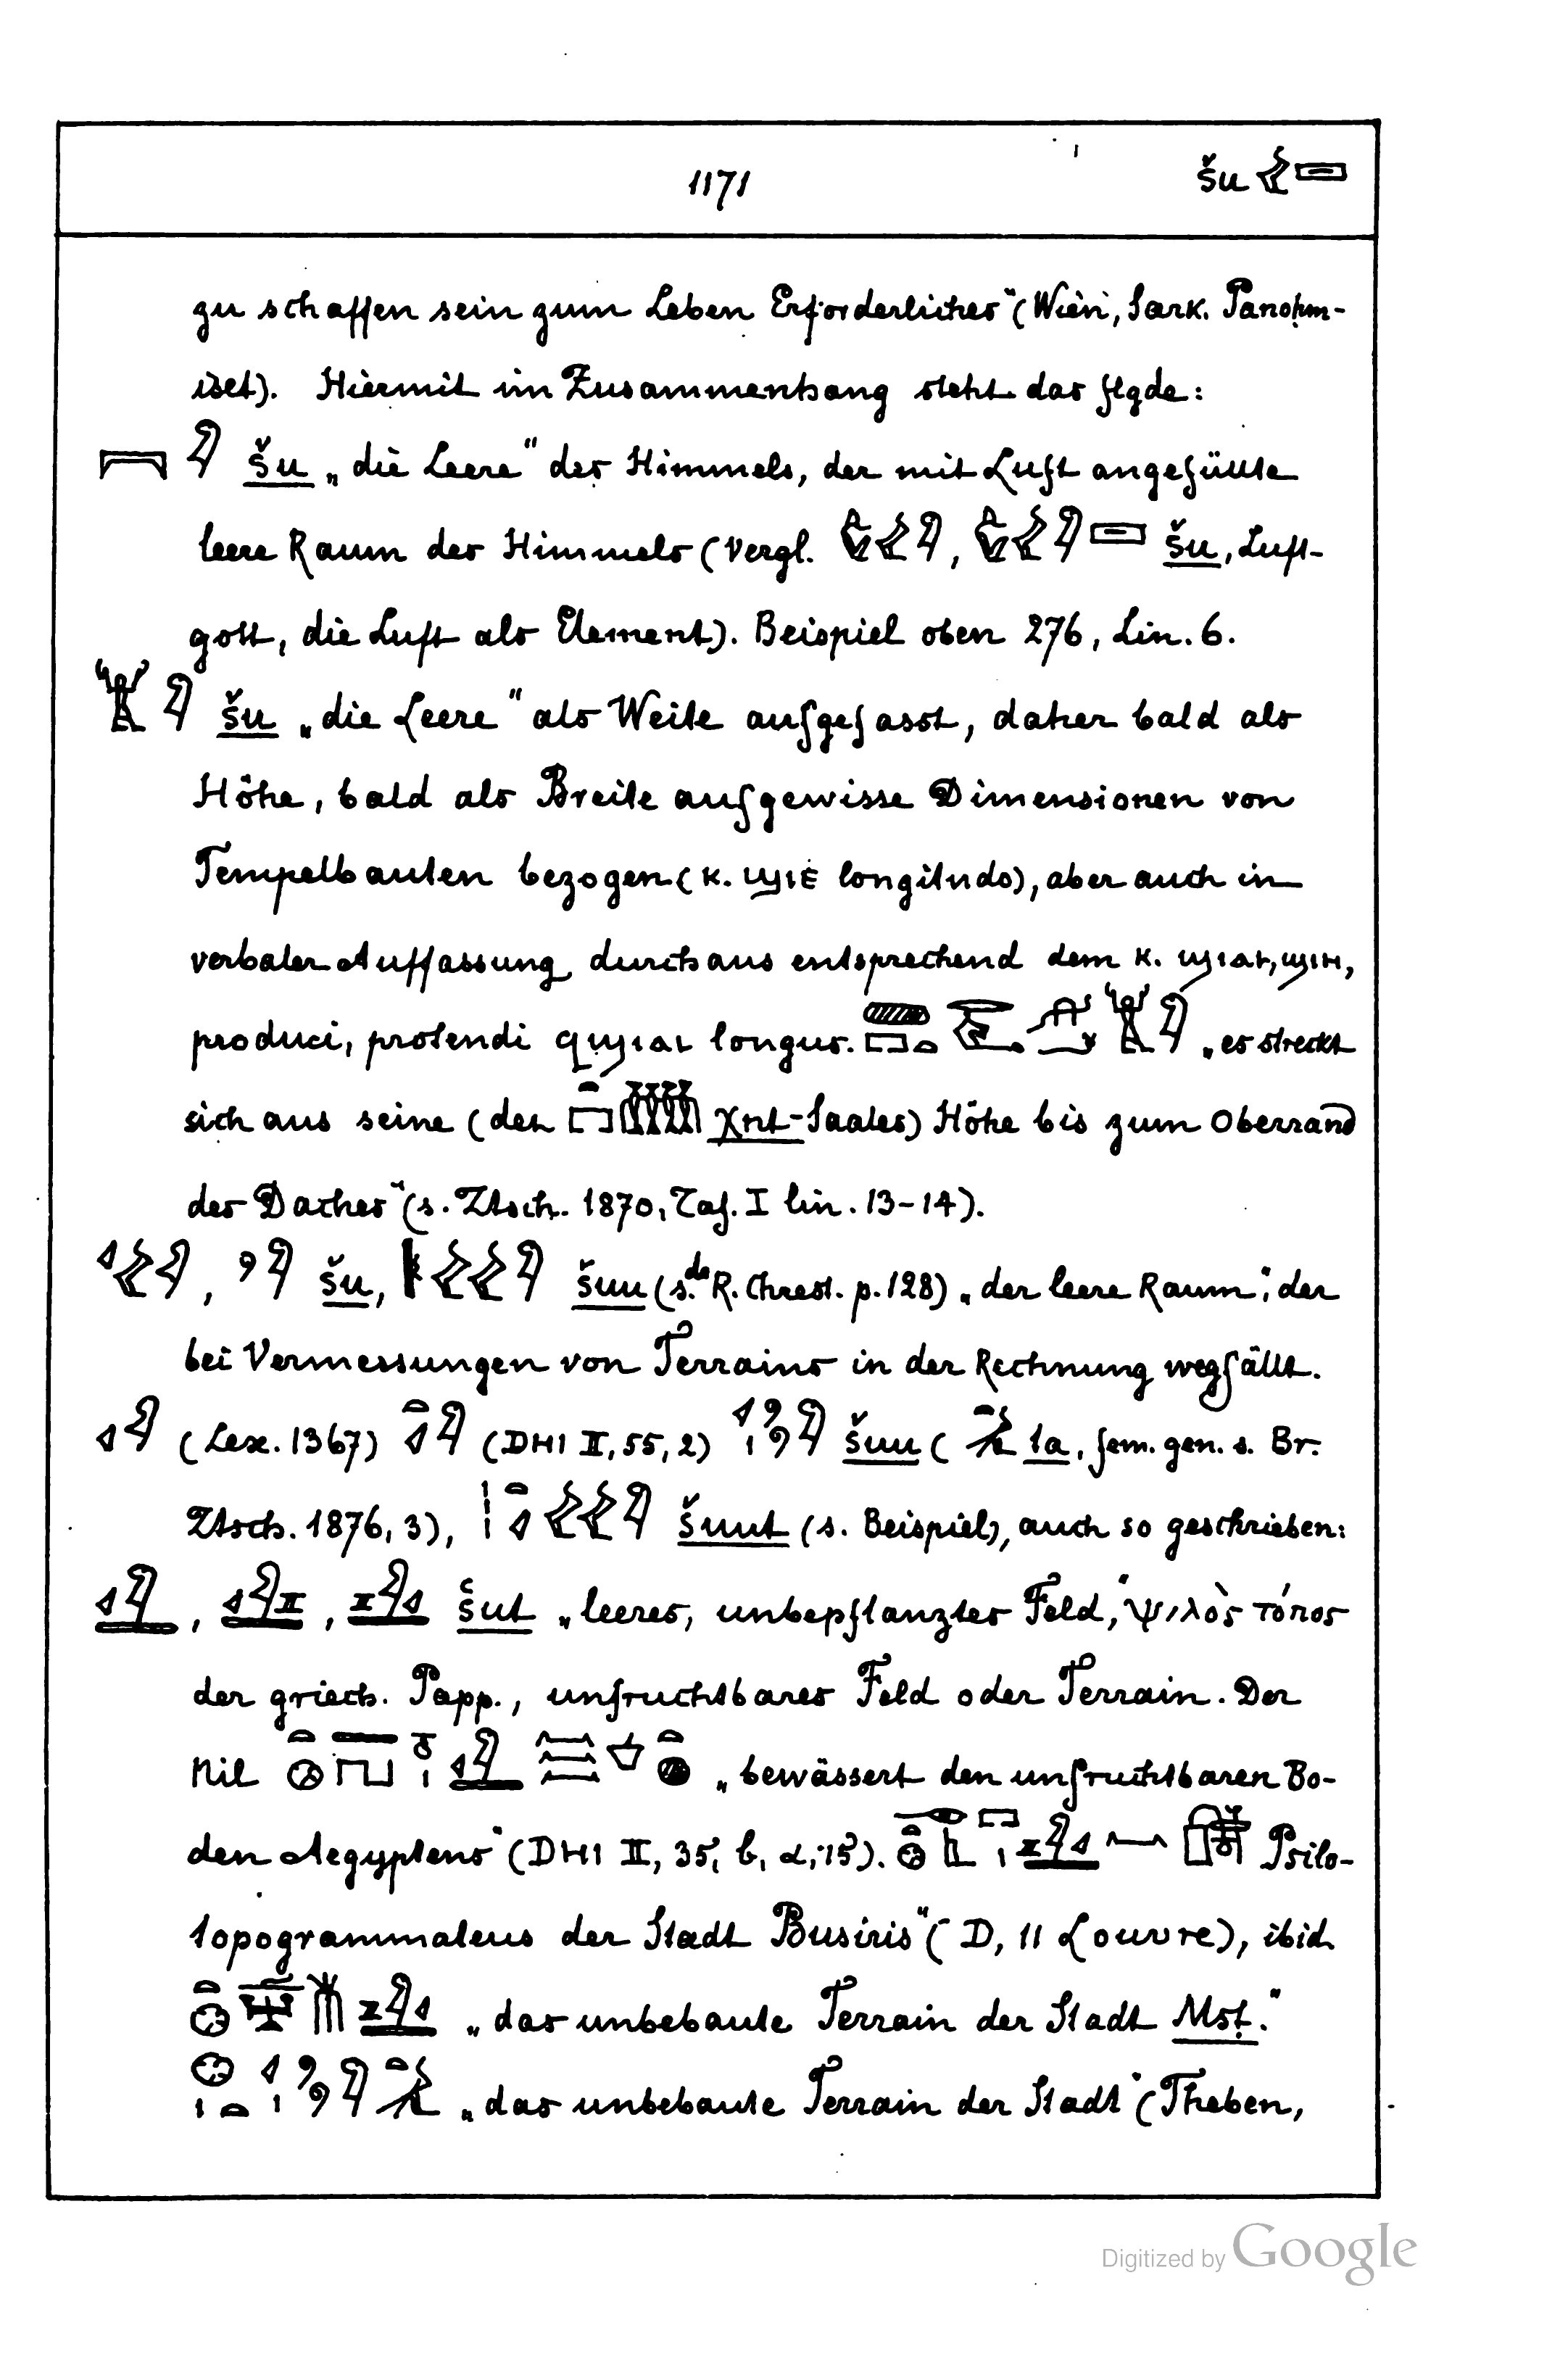 1171 šu
zu schaffen sein zum Leben Erforderliches" (Wien, Sark. Panoḥm-
iset). Hiermit im Zusammenhang steht das flgde:
šu „die Leere" des Himmels, der mit Luft angefüllte
leere Raum des Himmels (vergl. , šu, Luft-
gott, die Luft als Element). Beispiel oben 276, Lin. 6.
šu „die Leere" als Weite aufgefasst, daher bald als
Höhe, bald als Breite auf gewisse Dimensionen von
Tempelbauten bezogen (K. ϣⲓⲉ longitudo), aber auch in
verbaler Auffassung, durchaus entsprechend dem K. ϣⲓⲁⲓ, ϣⲓⲏ,
produci, protendi ⲉϥϣⲓⲁⲓ longus. „es streckt
sich aus seine (des χnt-Saales) Höhe bis zum Oberrand
des Daches" (s. Ztsch. 1870, Taf. I lin. 13-14).
, šu, šuu (s. de R. Chrest. p. 128) „der leere Raum", der
bei Vermessungen von Terrains in der Rechnung wegfällt.
(Lex. 1367) (DHI II, 55, 2) šuu ( ta, fem. gen. s. Br.
Ztsch. 1876, 3), šuut (s. Beispiel), auch so geschrieben:
, , šut „leeres, unbepflanztes Feld," ψιλὸς τόπος
der griech. Papp., unfruchtbares Feld oder Terrain. Der
Nil „bewässert den unfruchtbaren Bo-
den Aegyptens" (DHI II, 35, b, α, 15). Psilo-
topogrammateus der Stadt Busiris" (D, 11 Louvre), ibid.
„das unbebaute Terrain der Stadt Msṭ."
„das unbebaute Terrain der Stadt" (Theben,
Digitized by Google